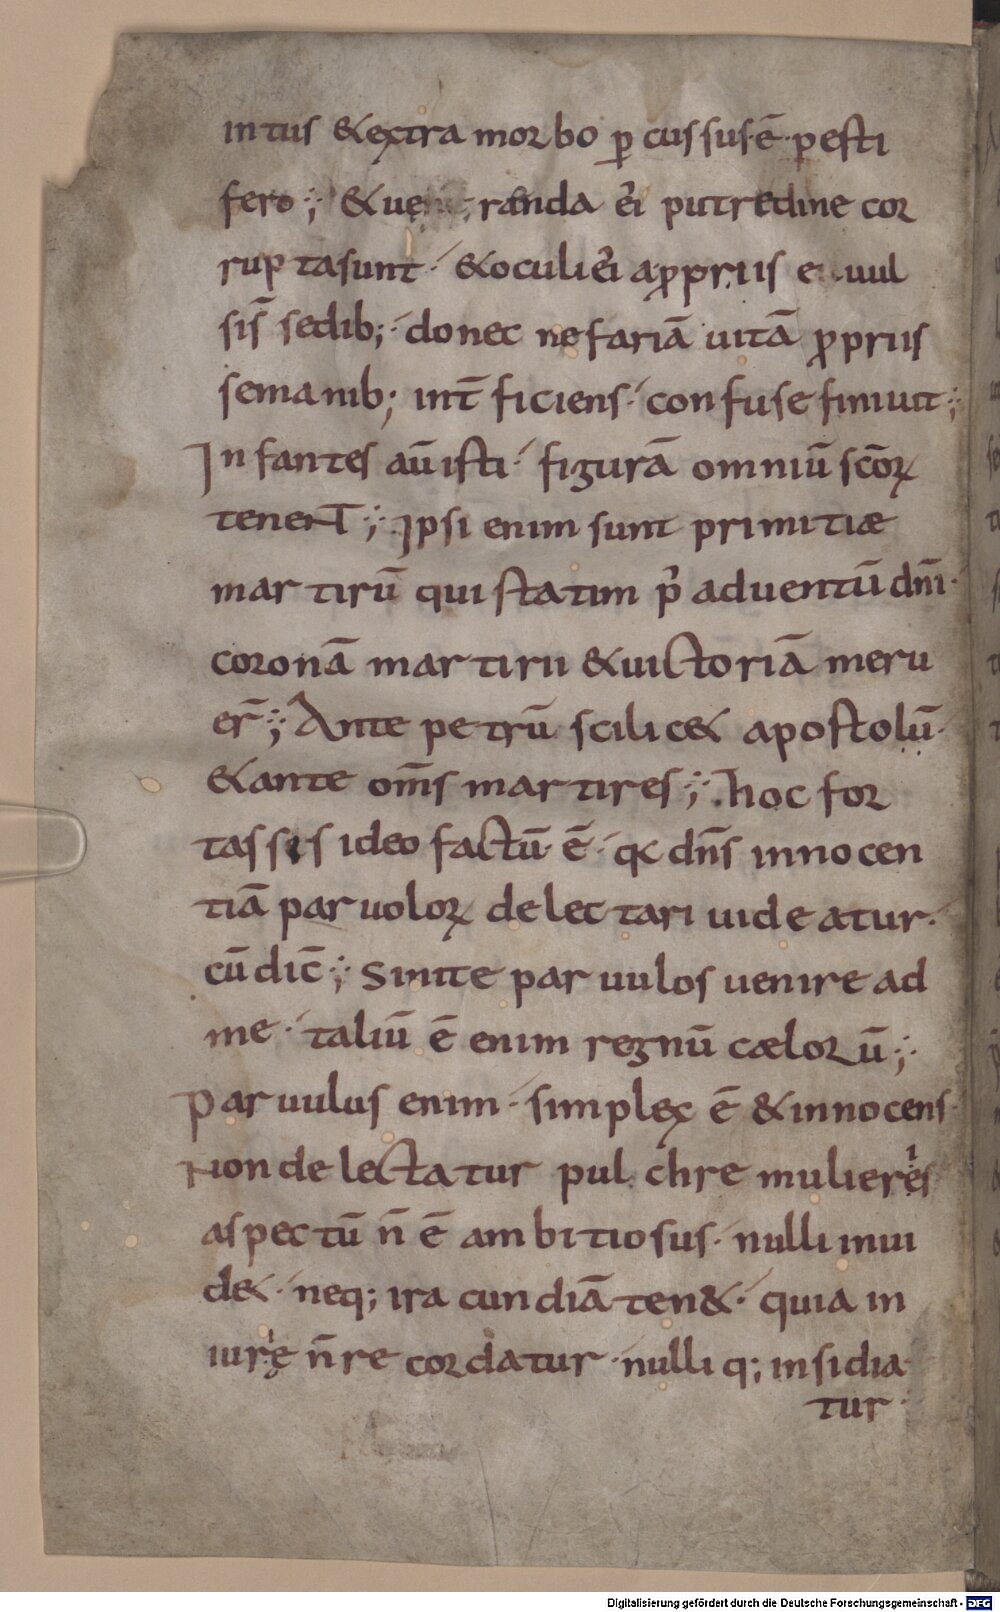 intus &extra morbo p̲ cussus ē pesti
fero ;  randa ei᾿ putredine cor
rup tasunt · &oculiei᾿ aꝓpriis uul
sis̄ sedib; · donec nefariā uitā ꝓpriis
semanib; int̄ ficiens · confuse finiuit ;
Infantes aū isti · figurā omniū scōꝝ
tenent ; Ipsi enim sunt primitiæ
martirū qui statim p᾿ aduentū dn̄i ·
coronā martirii &uictoriā meru
er̄ ; Ante petrū scilic& apostolū ·
&ante om̄s martires ; hoc for
tassis ideo factū ē · qđ dn̄s innocen
tiā paruoloꝝ delectari uideatur ·
cū dic̄ ; Sinite paruulos uenire ad
me · taliū ē enim regnū cælorū ;
Paruulus enim · simplex ē &innocens ·
Non delectatur pulchre mulieres
aspectū n̄ ē ambitiosus · nulli inui
d& · neq; iracundiā ten& · quia in
iurię n̄ recordatur · nulliq; insidia
tur ·
Digitalisierung gefördert durch die Deutsche Forschungsgemeinschaft - DFG